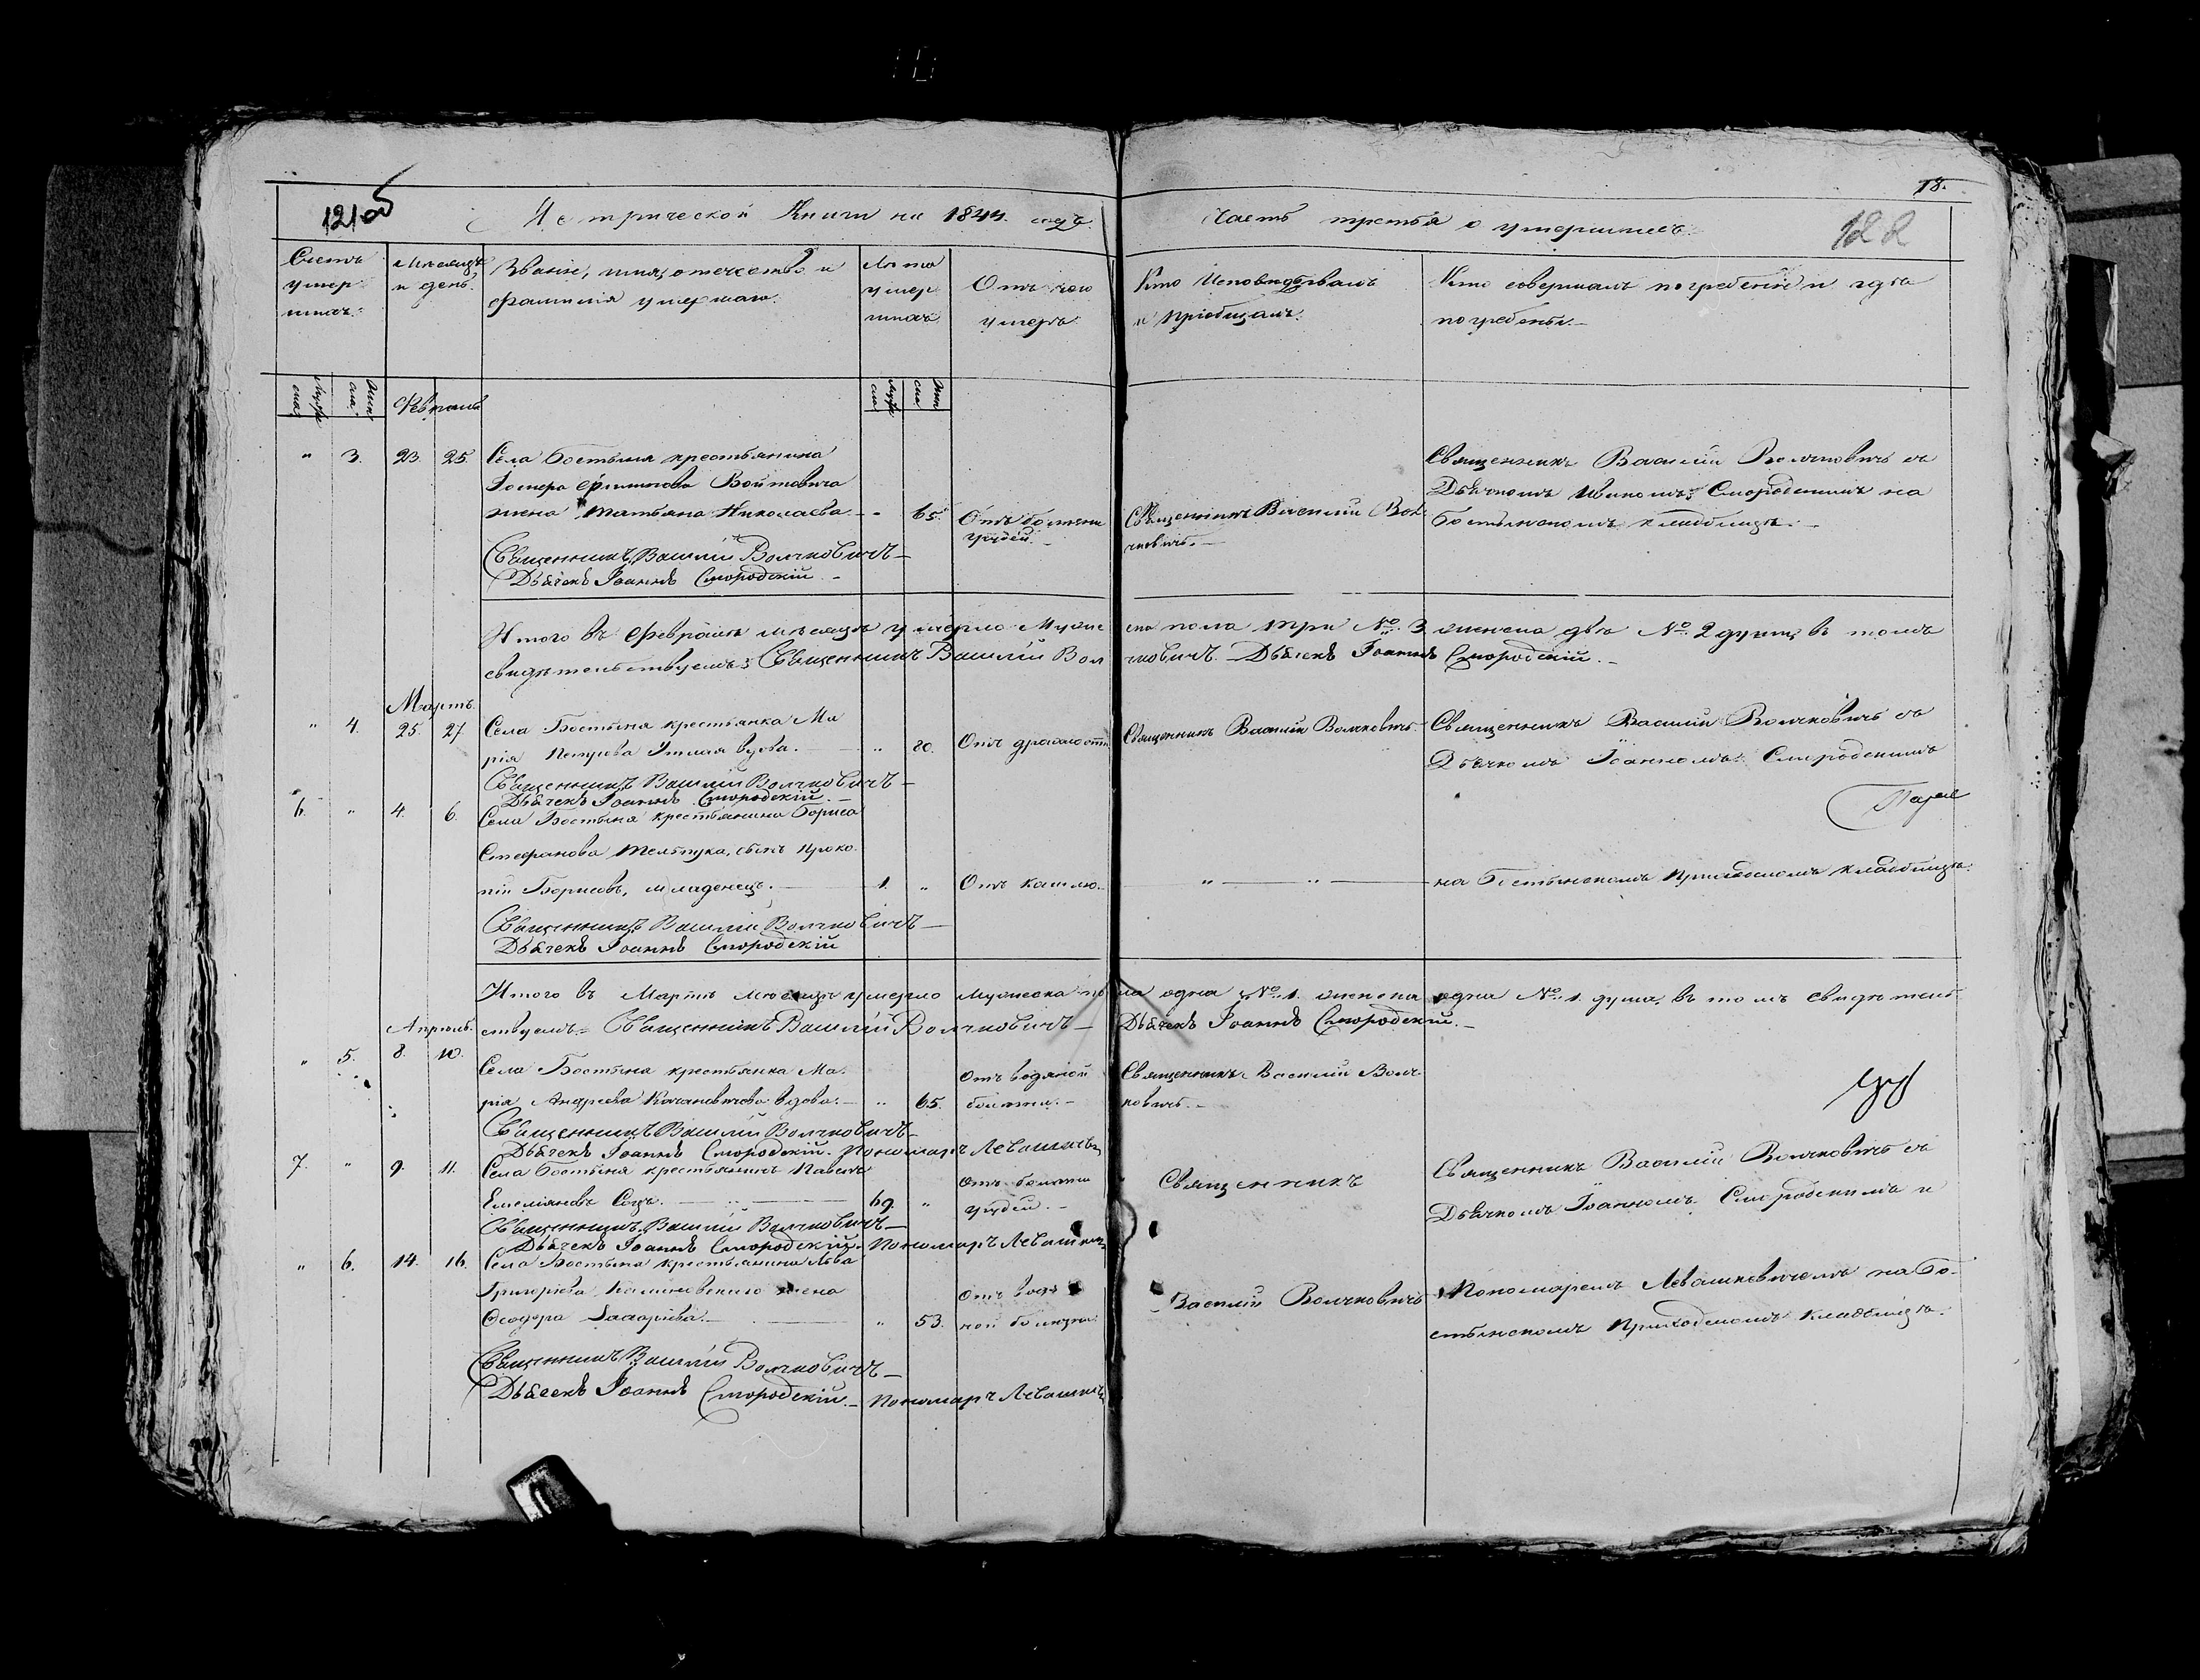 18.
121об
Метрической Книги на 1844. годъ
Часть третья о умершихъ.
122
Счетъ умер шихъ.
Мѣсяцъ и день.
Званіе, имя, отечество и фамилія умершаго.
Лѣта умер шихъ
Отъ чего умеръ.
Кто Исповѣдывалъ и пріобщалъ.
Кто совершалъ погребеніе и гдѣ погребены.
Муже ска.
Жен ска.
Февраль
Муже ска
Жен ска
" 3. 23. 25. Села Бостыня крестьянина
Филипова Войтовича
жена Татьяна Николаева - " 65. Отъ болезни грудей.
Священникъ Василій Вол чковичъ.
Священникъ Василій Волчковичъ съ
Дьячкомъ Смородскимъ на
Бостынскомъ кладбищѣ.
Священникъ Василій Волчковичъ
Дьячекъ Іоаннъ Смородскій
Итого въ Февралѣ мѣсяцѣ умерло Муже ска пола три №. 3 женска двѣ №. 2 душы въ томъ
свидѣтельствуемъ: Священникъ Василій Вол чковичъ. Дьячекъ Іоаннъ Смородскій.
Мартъ.
" 4. 25. 27. Села Бостыня крестьянка Ма
рія Петрова вдова. " 80. Отъ дряхлости
Священникъ Василій Волчковичъ.
Священникъ Василій Волчковичъ съ
Дьячкомъ Іоанномъ Смородскимъ
Священникъ Василій Волчковичъ
Дьячекъ Іоаннъ Смородскій
6. " 4. 6. Села Бостыня крестьянина Бориса
Стефанова сынъ Проко
пій Борисовъ, младенецъ. 1. " Отъ кашлю. " "
на Бостынскомъ Приходскомъ кладбищѣ.
Священникъ Василій Волчковичъ
Дьячекъ Іоаннъ Смородскій
Итого въ Мартѣ мѣсяцѣ умерло мужеска по ла одна №. 1. женска одна №. 1. душа въ томъ свидѣтель
ствуемъ. Священникъ Василій Волчковичъ Дьячекъ Іоаннъ Смородскій.
Апрѣль.
" 5. 8. 10. Села Бостыня крестьянка Ма
рія Андреева вдова. " 65. Отъ водяной болезни.
Священникъ Василій Волч ковичъ.
Священникъ Василій Волчковичъ
Дьячекъ Іоаннъ Смородскій. Пономарь
7. " 9. 11. Села Бостыня крестьянинъ Павелъ
Емеліяновъ 69. " Отъ болезни грудей.
Священникъ
Священникъ Василій Волчковичъ съ
Дьячкомъ Іоанномъ Смородскимъ и
Священникъ Василій Волчковичъ
Дьячекъ Іоаннъ Смородскій. Пономарь
" 6. 14. 16. Села Бостыня крестьянина Льва
Григорьева жена
Ѳеодора " 53. Отъ водя ной болезни.
Василій Волчковичъ
Пономаремъ Левашкевичемъ на Бо
стынскомъ Приходскомъ Кладбищѣ.
Священникъ Василій Волчковичъ
Дьячекъ Іоаннъ Смородскій. Пономарь